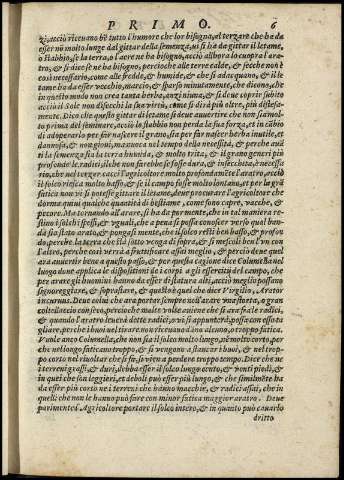 PRIMO. 6
zi, acciò riceuano bẽ tutto l'humore che lor bisogna, el terzare che ha da
esser nõ molto lunge dal gittar della semenza, ui si ha da gittar il letame,
o stabbio, se la terra, o l'aere ne ha bisogno, acciò allhora lo cuopra l'ara-
tro, & si dice se ne ha bisogno, percioche alle terre calde, & secche non è
così necessario, come alle fredde, & humide, & che si adacquano, & il le-
tame ha da esser vecchio, marcio, & sparso minutamente, che dicono, che
in questo modo non crea tanta herba, anzi niuna, & si deue coprir subito
acciò il Sole non disecchi la sua virtù, come si dirà più oltre, più distesa-
mente. Dico che questo gittar di letame se deue auuertire che non sia mol-
to prima del seminare, acciò lo stabbio non perda la sua forza, & in cãbio
di adoperarlo per far nascere il grano, sia per far nascer herba inutile, et
dannosa, & non gioui, manuca nel tempo della necessità, & perche auã
ti la semenza sia la terra humida, & molto trita, & il grano generi più
profonde le radici, ilche non sarebbe se fosse dura, & insecchita, è necessa-
rio, che nel terzar cacci l'agricoltore molto profondamẽte l'aratro, acciò
il solco riesca molto basso, & se il campo fosse molto lontano, et per la grã
fatica non vi si potesse gittare il letame, deue procurare l'agricoltore che
dorma quiui qualche quantità di bestiame, come sono capre, vacche, &
pecore. Ma tornando all'arare, si ha da por mente, che in tal maniera re-
stino i solchi spessi, & vguali, che a pena si possa conoscer verso qual ban-
da sia stato arato, & pongasi mente, che il solco resti ben basso, & profon-
do, perche la terra che stà sotto venga di sopra, & si mescoli ben l'vn con
l'altro, perche così verrà a fruttificare assai meglio, & perciò deue quel
ara auuertir bene a questo passo, & per questa cagione dice Columella nel
luogo doue applica le dispositioni de i corpi a gli essercitij del campo, che
per arare gli huomini hanno da esser di statura alti, acciò meglio possano
signoreggiare, & soprastare, & quello è quel che dice Virgilio, Arator
incuruus. Deue colui che ara portar sempre nell'arare vna storta, o gran
coltellaccio con seco, percioche molte volte auiene che si ara fra le radici,
& quando l'aratro leuerà dette radici, o vi si appunterà, possa con esso ta
gliare, perche i buoi nel tirare non riceuano dãno alcuno, o troppo fatica.
Vuole anco Columella, che non sia il solco molto lungo, nè molto corto, per
che nel longo faticano troppo, & si vengono a stancar i buoi, & nel trop-
po corto nel riuoltar che si fà, si vien a perdere troppo tempo. Dice che ne
i terreni grassi, & duri, debba esser il solco longo cento, & venti piedi, &
in quei che son leggieri, et deboli può esser più lungo, & che similmẽte ha
da esser più corto ne i terreni che hanno macchie, & radici assai, che in
quelli che non le hanno può fare con minor fatica maggior aratro. Deue
parimente l'Agricoltore portare il solco intero, & in quanto può cauarlo
dritto